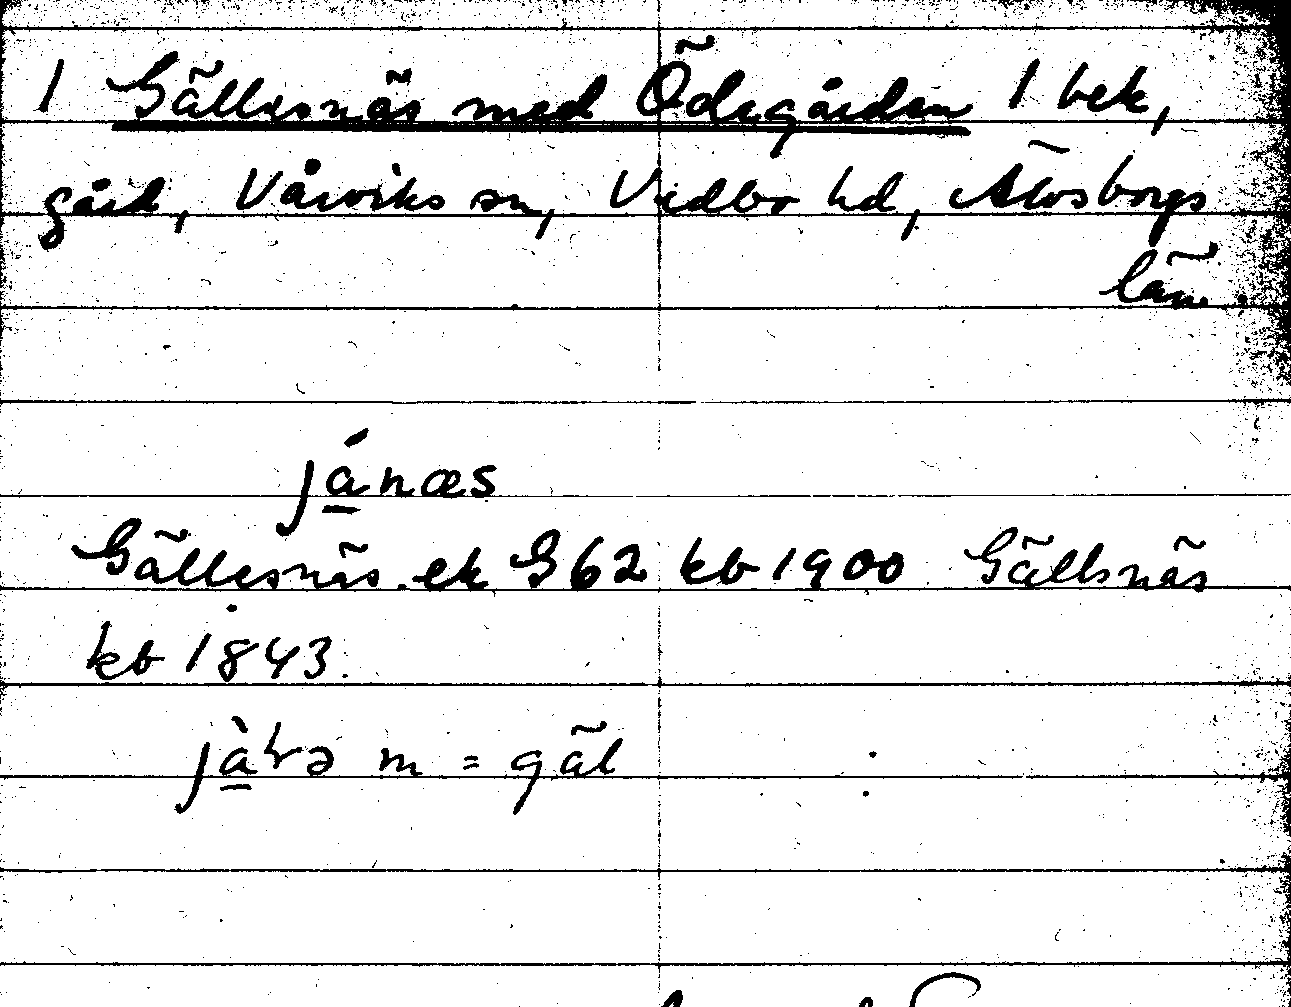 1 Gällesnäs med Ödegården 1 bek,
gård, Vårviks sn, Vedbo hd, Älvsborgs
län.
já̱næs
Gällesnäs. ek G 62 kb 1900 Gällsnäs
kb 1843.
m = gäl